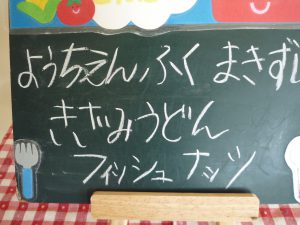 ようちえんふく まきずし
きざみうどん
フィッシュナッツ